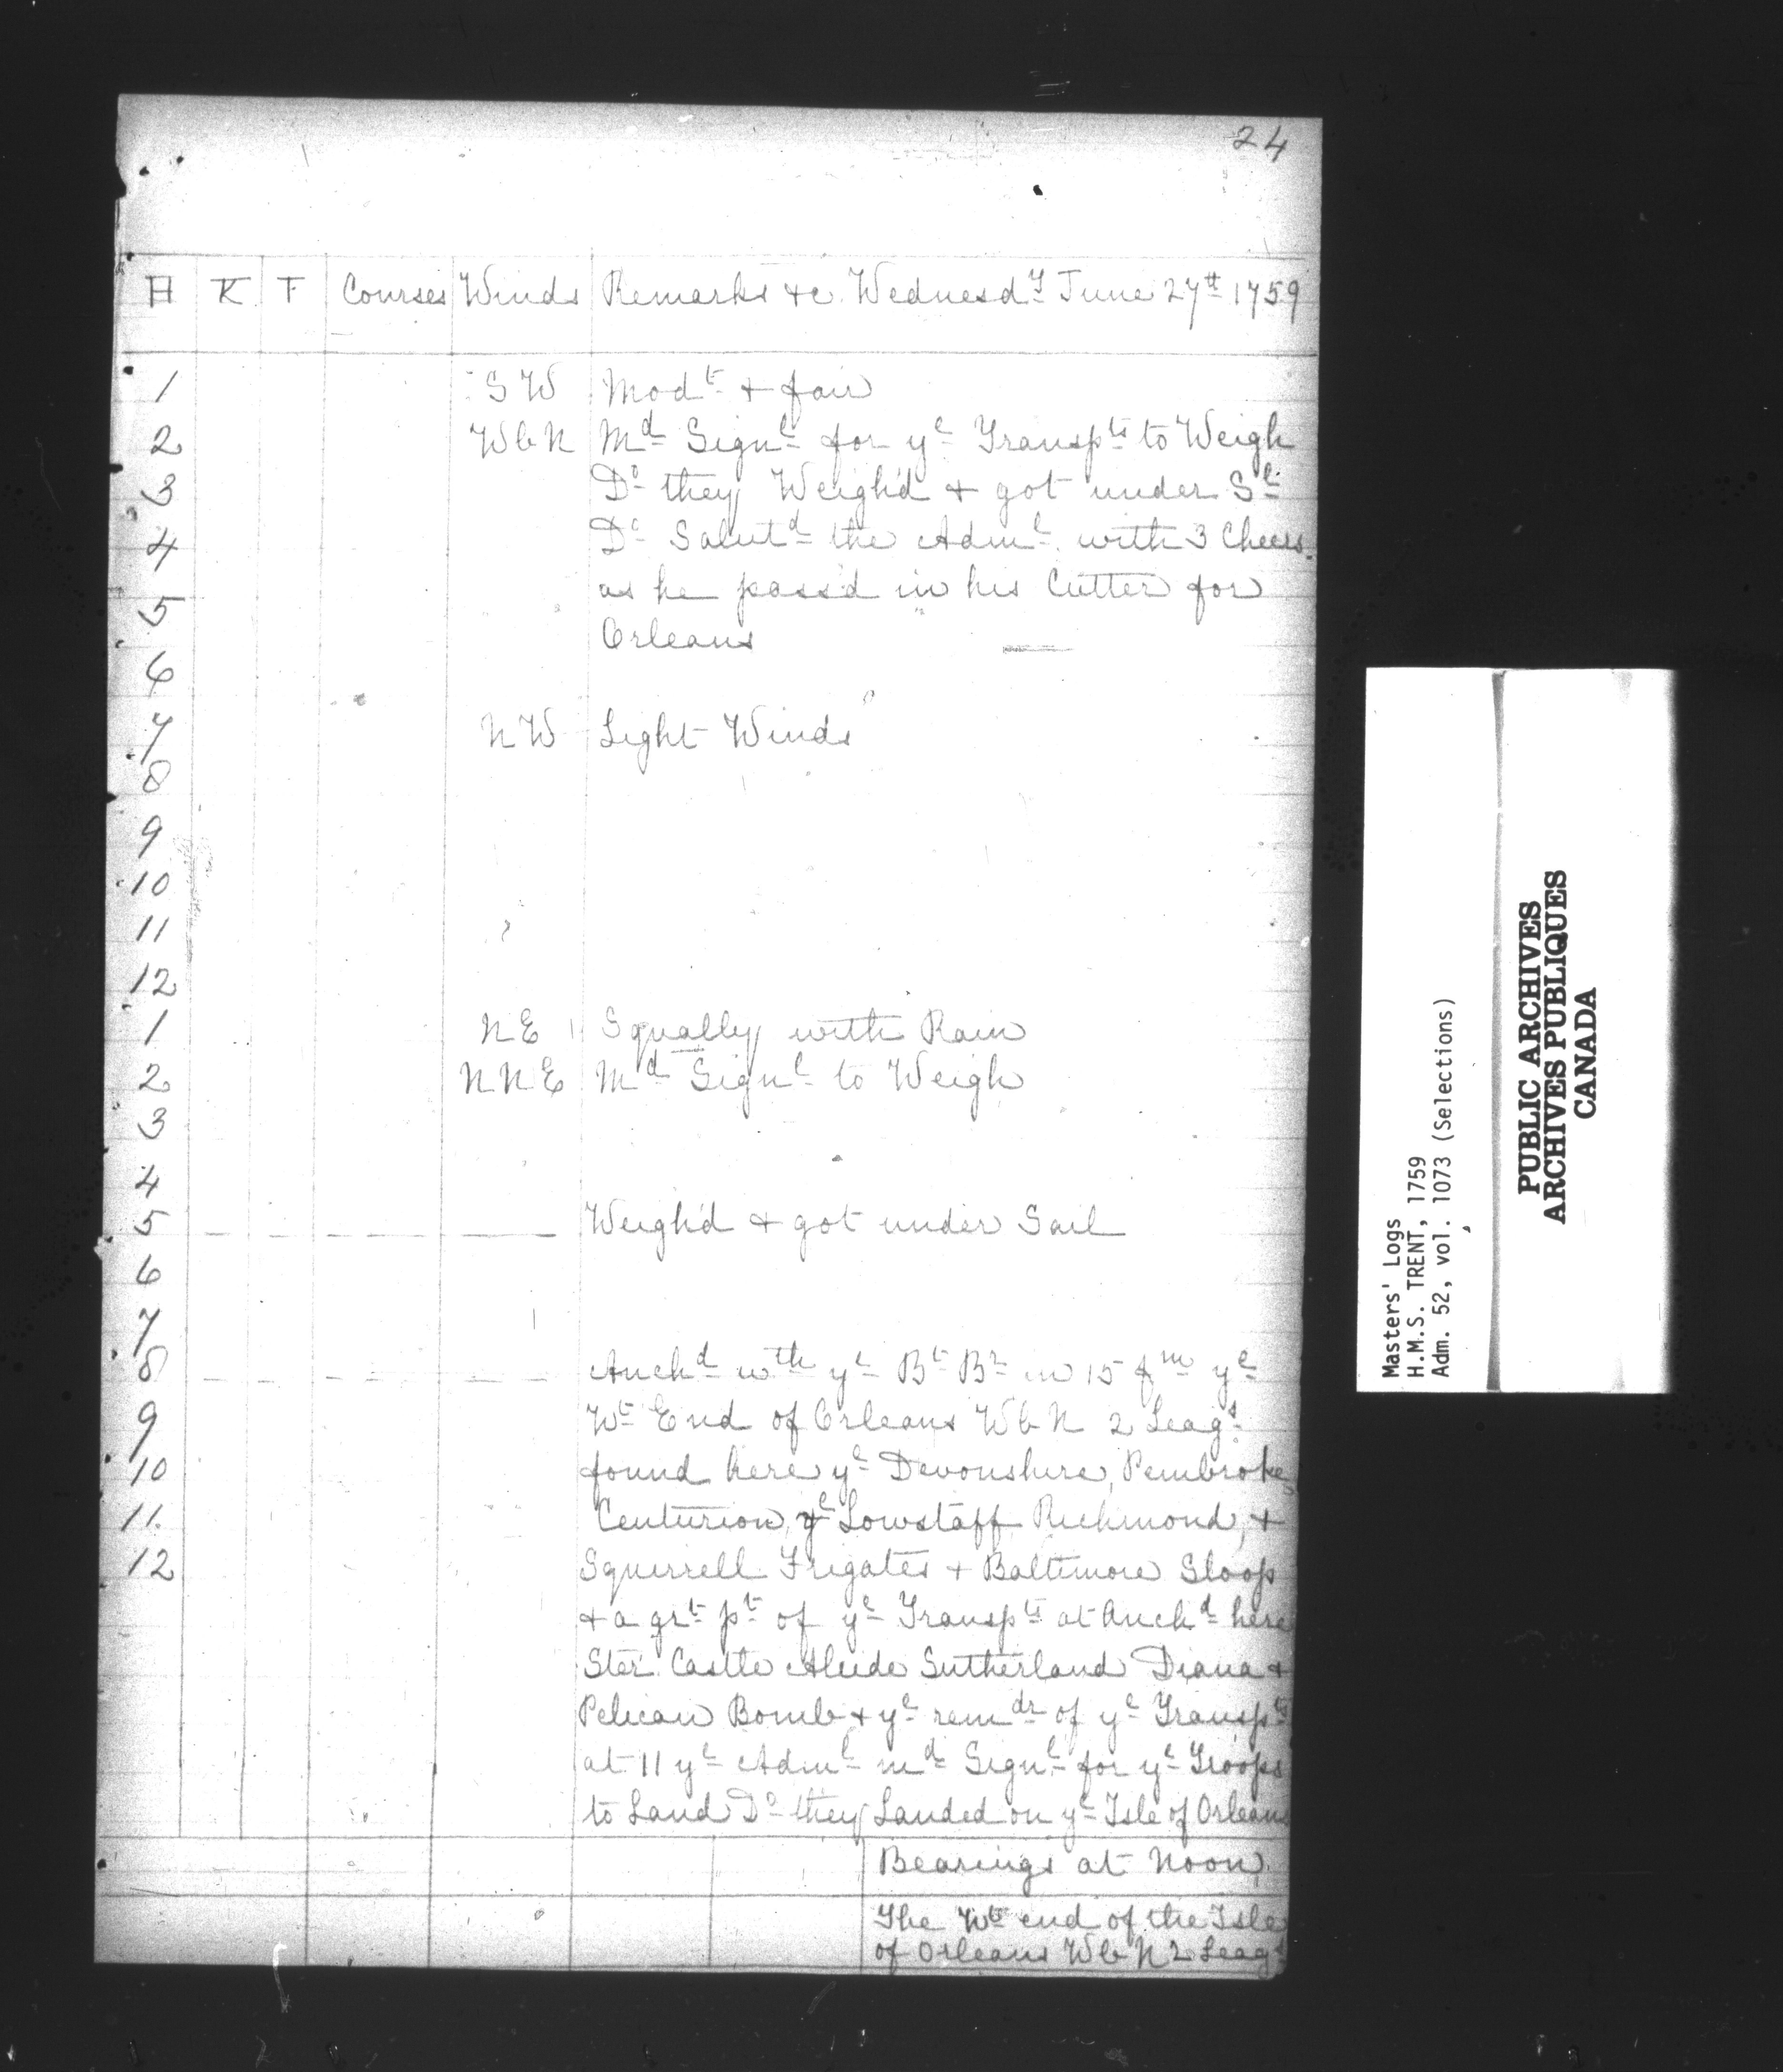 24
H K F Courses Winds Remarks &c. Wednesdy June 27th 1759
1 SW Modt & fair
2 WbN Md Signl for ye Transpts to Weigh
3 Do they Weigh'd & got under Sl
4 Do Salutd the Adml with 3 Cheers
as he pass'd in his Cutter for
5
Orleans
6
7 NW Light Winds
8
9
10
11
12
1 NE Squally with Rain
2 NNE Md Signl to Weigh
3
4
5 Weigh'd & got under Sail
6
7
8 Anchd wth ye Bt Br in 15 fm ye
9 Wt End of Orleans WbN 2 Leags
10 found here ye Devonshire, Pembroke,
11 Centurion, ye Lowstaff Richmond, &
12 Squirrell Frigates & Baltimore Sloop
& a grt pt of ye Transpts at Anchd here
Ster. Castle Alcide Sutherland Diana &
Pelican Bomb & ye remdr of ye Transpts
at 11 ye Adml md Signl for ye Troops
to Land Do they Landed on ye Isle of Orleans
Bearings at Noon
The Wt end of the Isle
of Orleans WbN 2 Leags
Masters' Logs
H.M.S. TRENT, 1759
Adm. 52, vol. 1073 (Selections)
PUBLIC ARCHIVES
ARCHIVES PUBLIQUES
CANADA